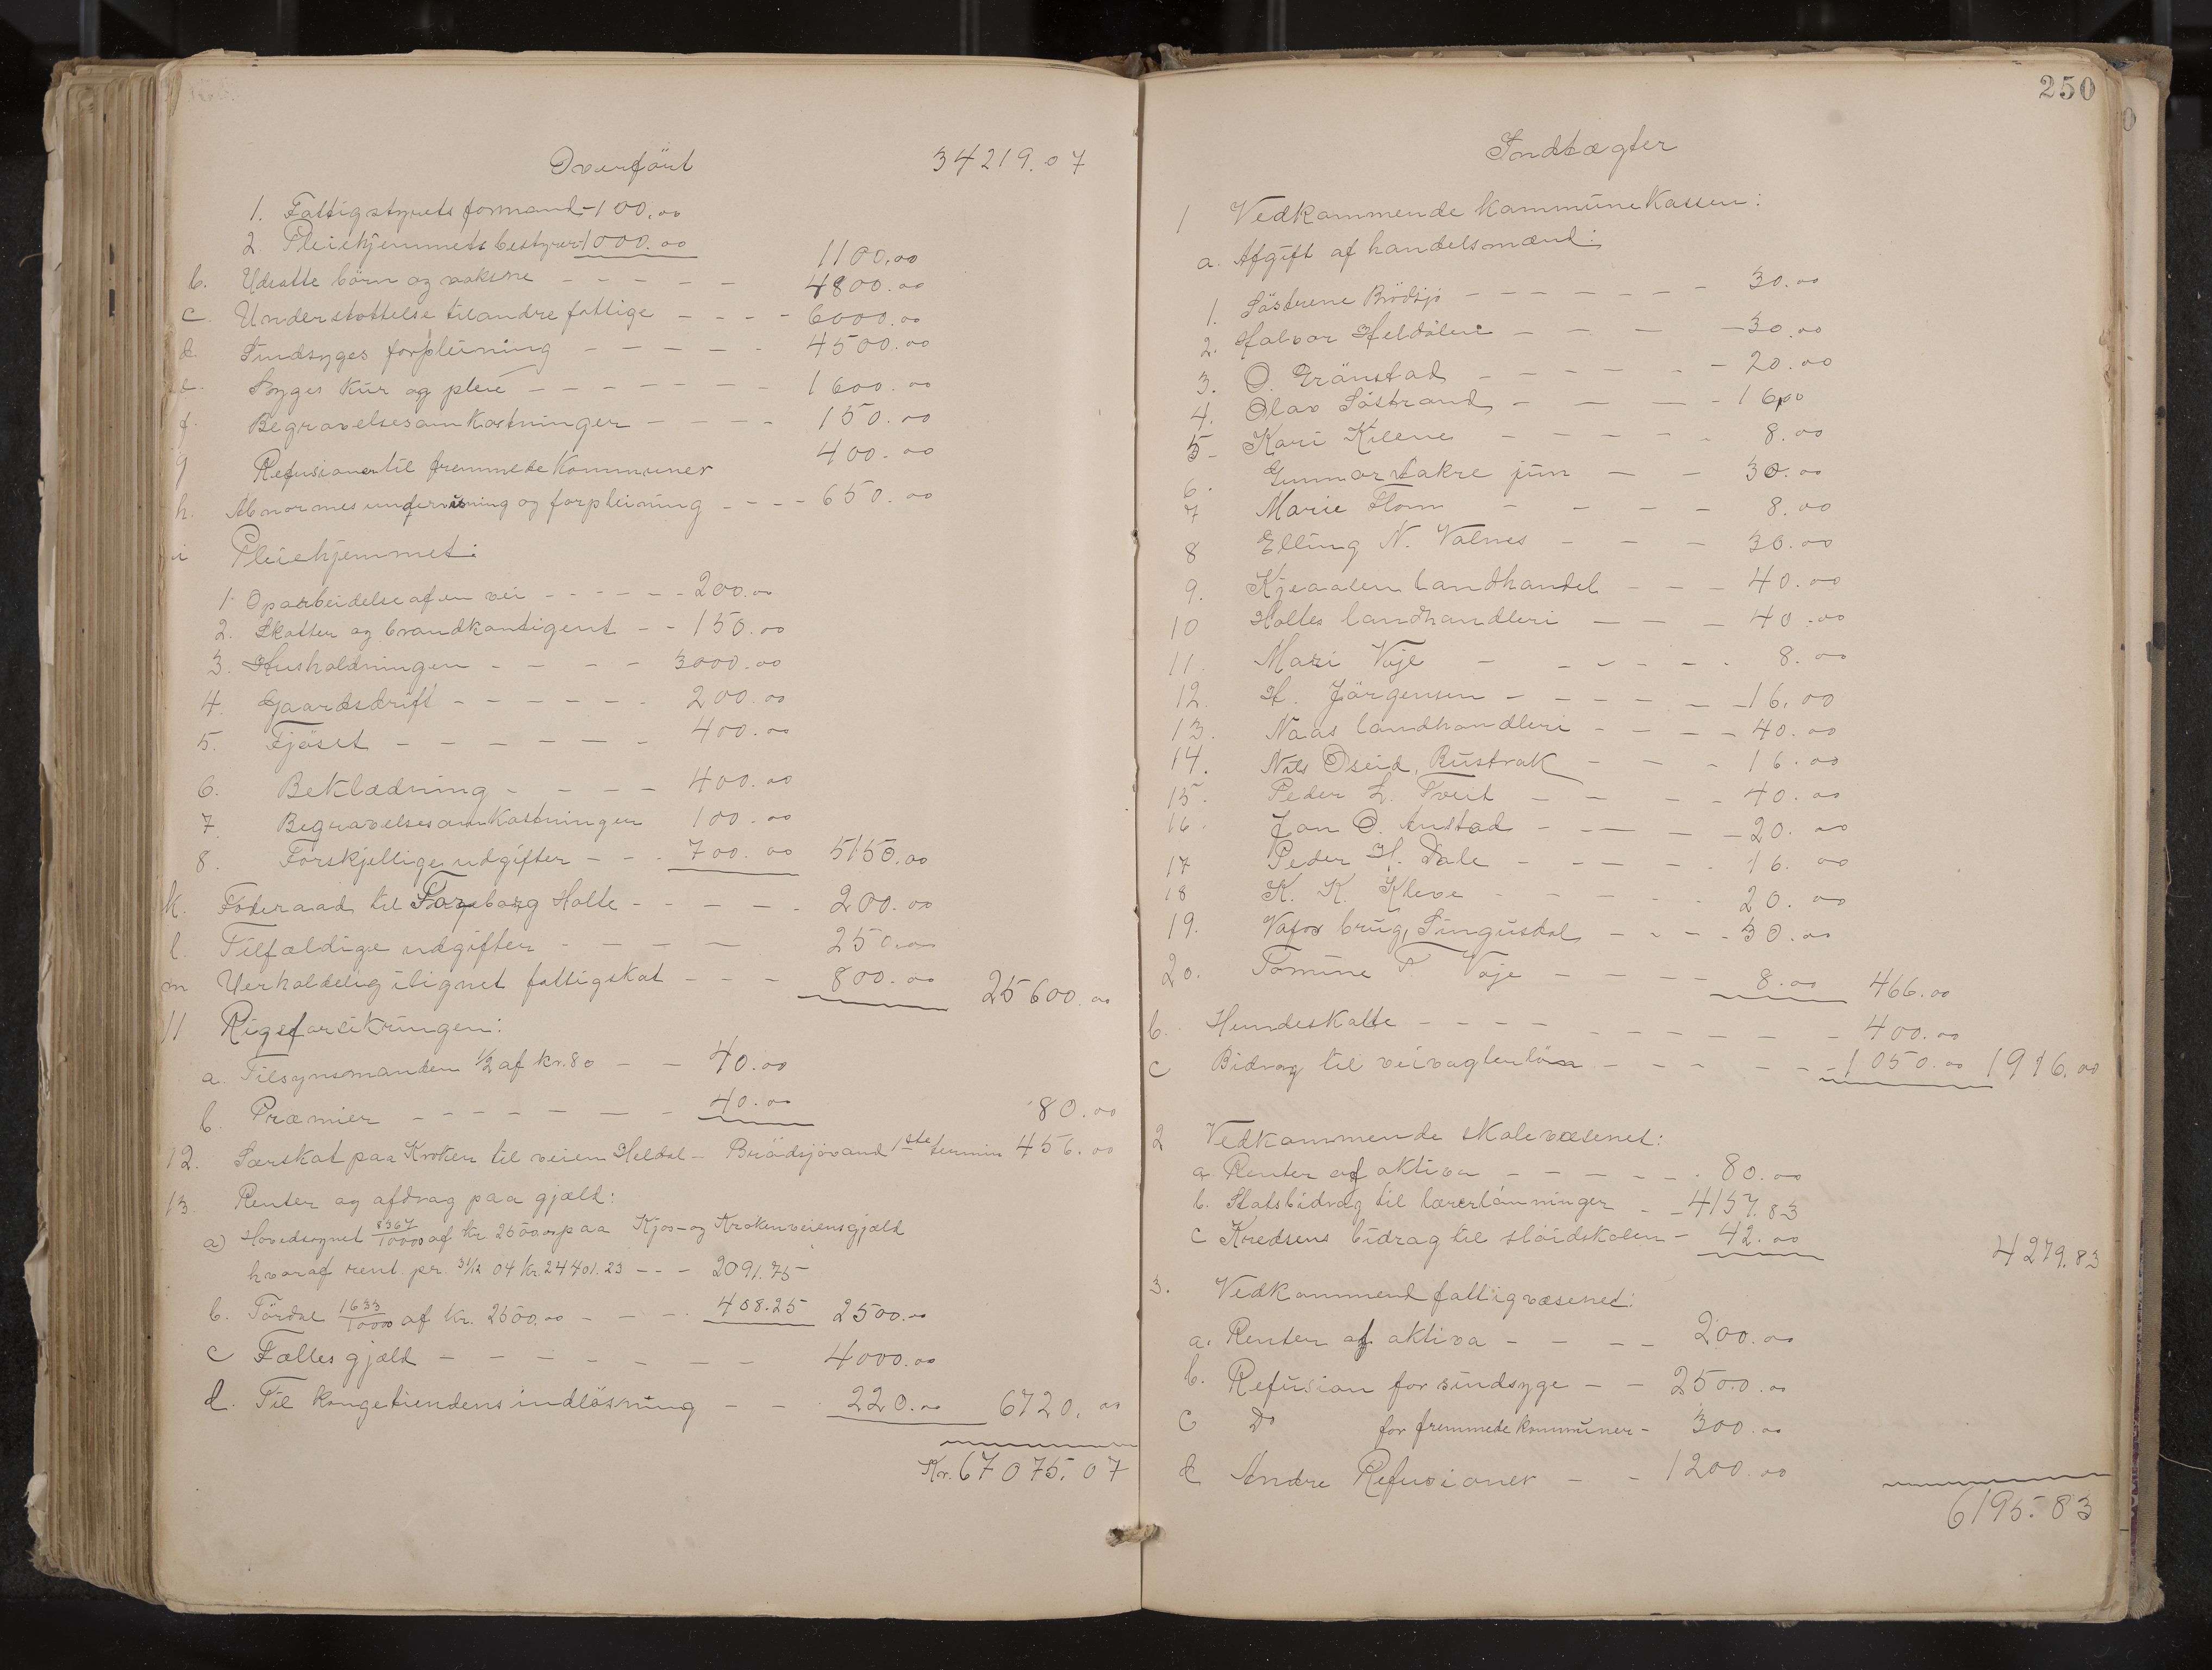 Overført 34219.07
1. Fattigstyrets formand - 100.00
2. Pleiehjemmets bestyrer 1000.00 1100.00
b. Udsatte börn og voksne - - - - - 4800.00
c. Understøttelse til andre fattige - - - - 6000.00
d. Sindsyges forpleining - - - - - 4500.00
e. Syges kur og pleie - - - - - - - 1600.00
f. Begravelsesomkostninger - - - - 150.00
g Refusioner til fremmede Kommuner 400.00
h. Abnormes undervisning og forpleining - - - 650.00
i Pleiehjemmet:
1. Oparbeidelse af en vei - - - - - - 200.00
2. Skatter og brandkontigent - - 150.00
3. Husholdningen - - - - 3000.00
4. Gaardsdrift - - - - - - 200.00
5. Fjöset - - - - - - - 400.00
6. Beklædning - - - - 400.00
7. Begravelsesomkostninger 100.00
8. Forskjellige udgifter - - - 700.00 5150.00
k. Föderaad til Holte - - - - - 200.00
l. Tilfældige udgifter - - - - 250.00
m Uerholdelig ilignet fattigskat - - - 800.00 25600.00
11 Rigsforsikringen:
a. Tilsynsmanden 1/2 af kr. 80 - - 40.00
b. Præmier - - - - - - - 40.00 80.00
12. Særskat paa Kroken til veien Heldal - Bröidsjövand 1ste termin 456.00
13. Renter og afdrag paa gjæld:
a) Hovedsognet 8367/10000 af kr 2500.00 paa Kjos- og Krokenveiens gjæld
hvoraf rent. pr. 31/12 04 kr. 24401.23 - - - 2091.75
b. Tördal 1633/10000 af kr. 2500.00 - - - 408.25 2500.00
c Fælles gjæld - - - - - - - 4000.00
d. Til kongetiendens indlösning - - 220.00 6720.00
Kr. 67075.07
250
Indtægter
1 Vedkommende kommunekassen:
a. Afgift af handelsmænd:
1. Söstrene Brödsjö - - - - - - - 30.00
2. Halvor Heldölen - - - - 30.00
3. O. Grånstad - - - - - - 20.00
4. Olav Söstrand - - - - 16.00
5 - Kari Kilene - - - - - 8.00
6. Gunnar Vakre jun - - 30.00
7 Marie Thom - - - - 8.00
8 Elling N. Valnes - - - 30.00
9. Kjeaalen Landhandel - - - 40.00
10 Holtes landhandleri - - - 40.00
11. Mari Voje - - - - - - 8.00
12. H. Jörgensen - - - - - - 16.00
13. Naas landhandleri - - - - 40.00
14. Nils Oseid, Rustvak - - - 16.00
15. Peder L. Tveit - - - - 40.00
16. Jon O. Anstad - - - - - 20.00
17 Peder H. Dale - - - - - 16.00
18 K. K. Kleve - - - - - 20.00
19. Vafos brug, Singusdal - - - - 30.00
20. Tomine T. Voje - - - - 8.00 466.00
b. Hundeskatte - - - - - - - - - 400.00
c Bidrag til veivogterlön - - - - - - 1050.00 1916.00
2 Vedkommende skolevæsenet:
a. Renter af aktiva - - - - - - 80.00
b. Statsbidrag til lærerlönninger - - 4157.83
c Kredsens bidrag til slöidskolen - 42.00 4279.83
3. Vedkommend fattigvæsenet:
a. Renter af aktiva - - - - 200.00
b. Refusion for sindsyge - - 2500.00
c Do for fremmede kommuner - 300.00
d Andre Refusioner - - 1200.00
6195.83